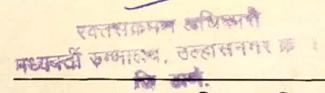 रक्तसंक्रमण अधिकारी
मध्यवर्ती रुग्णालय, उल्हासनगर क्र
जि ठाणे.